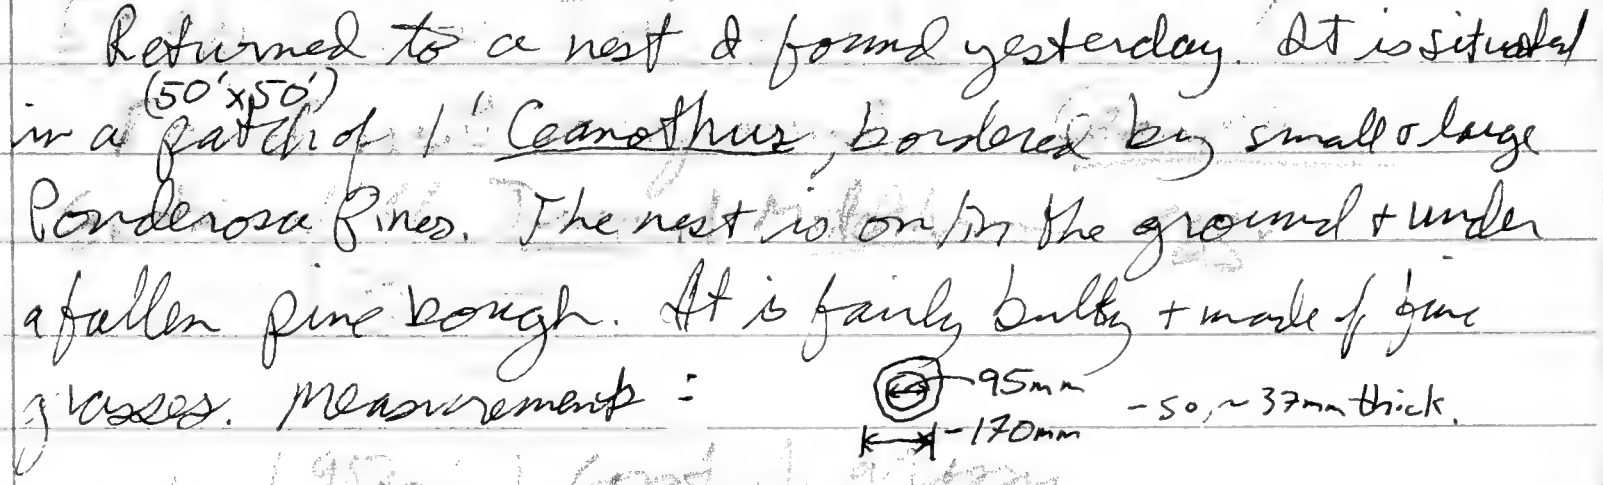 Returned to a nest I found yesterday. It is situated
(50'x50')
in a patch of 1' Ceanothus, bordered by small & large
Ponderosa Pines. The nest is on/in the ground + under
a fallen pine bough. It is fairly bulky + made of fine
grasses. Measurements:
95mm
- so, ~ 37mm thick.
170mm